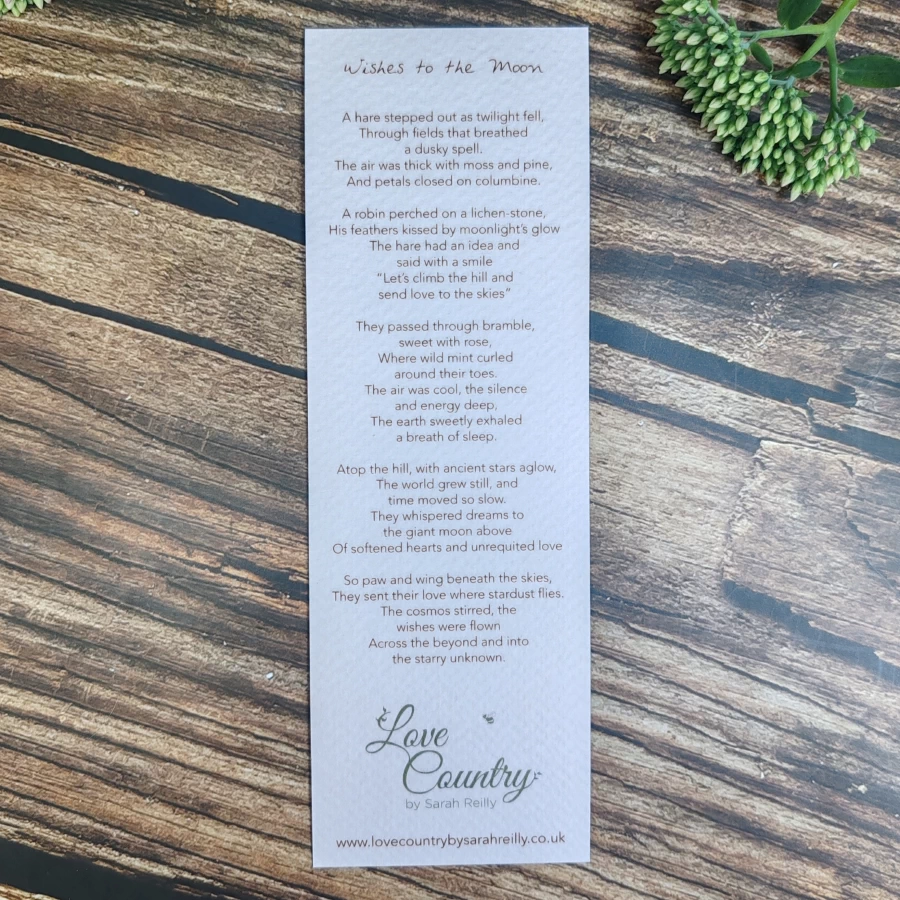 Wishes to the Moon
A hare stepped out as twilight fell,
Through fields that breathed
a dusky spell.
The air was thick with moss and pine,
And petals closed on columbine.
A robin perched on a lichen-stone,
His feathers kissed by moonlight's glow
The hare had an idea and
said with a smile
"Let's climb the hill and
send love to the skies"
They passed through bramble,
sweet with rose,
Where wild mint curled
around their toes.
The air was cool, the silence
and energy deep,
The earth sweetly exhaled
a breath of sleep.
Atop the hill, with ancient stars aglow,
The world grew still, and
time moved so slow.
They whispered dreams to
the giant moon above
Of softened hearts and unrequited love
So paw and wing beneath the skies,
They sent their love where stardust flies.
The cosmos stirred, the
wishes were flown
Across the beyond and into
the starry unknown.
Love
Country
by Sarah Reilly
www.lovecountrybysarahreilly.co.uk